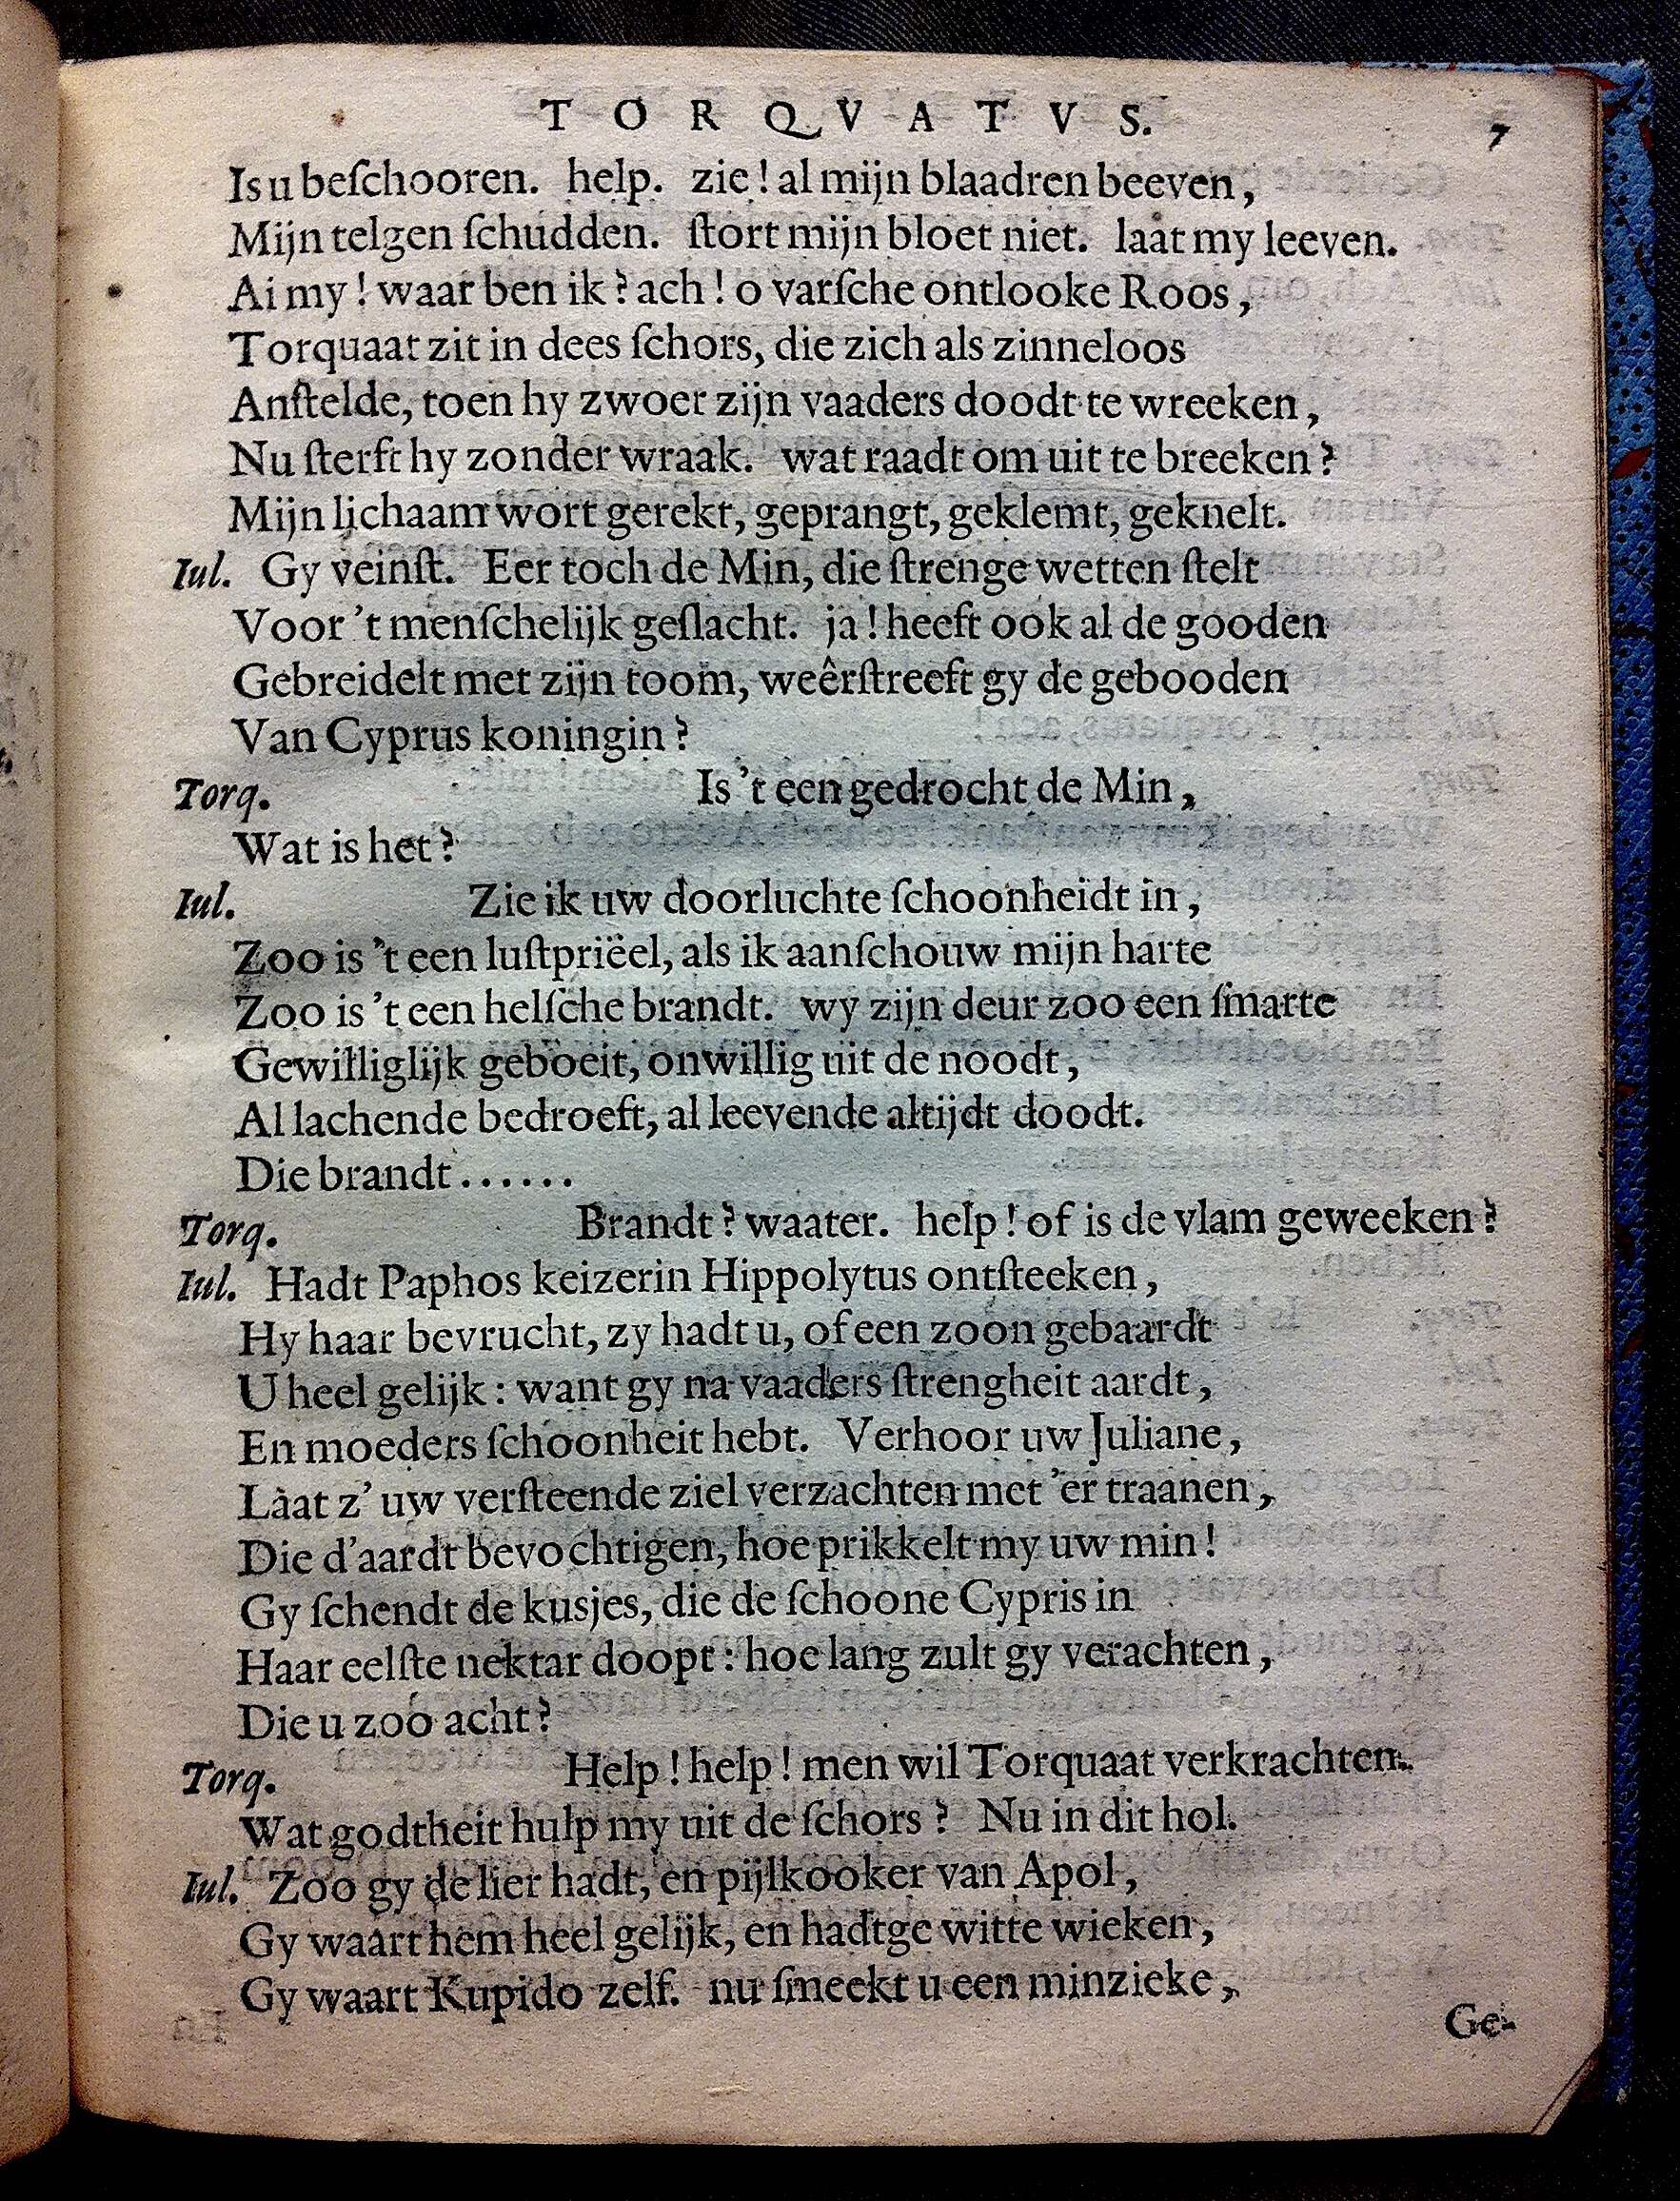 TORQVATVS. 7
Is u beſchooren. help. zie! al mijn blaadren beeven,
Mijn telgen ſchudden. ſtort mijn bloet niet. laat my leeven.
Ai my! waar ben ik? ach! o varſche ontlooke Roos,
Torquaat zit in dees ſchors, die zich als zinneloos
Anſtelde, toen hy zwoer zijn vaaders doodt te wreeken,
Nu ſterft hy zonder wraak. wat raadt om uit te breeken?
Mijn lichaam wort gerekt, geprangt, geklemt, geknelt.
Iul. Gy veinſt. Eer toch de Min, die ſtrenge wetten ſtelt
Voor 't menſchelijk geſlacht. ja! heeft ook al de gooden
Gebreidelt met zijn toom, weêrſtreeft gy de gebooden
Van Cyprus koningin?
Torq. Is 't een gedrocht de Min,
Wat is het?
Iul. Zie ik uw doorluchte ſchoonheidt in,
Zoo is 't een luſtpriëel, als ik aanſchouw mijn harte
Zoo is 't een helſche brandt. wy zijn deur zoo een ſmarte
Gewilliglijk geboeit, onwillig uit de noodt,
Al lachende bedroeft, al leevende altijdt doodt.
Die brandt......
Torq. Brandt? waater. help! of is de vlam geweeken?
Iul. Hadt Paphos keizerin Hippolytus ontſteeken,
Hy haar bevrucht, zy hadt u, of een zoon gebaardt
U heel gelijk: want gy na vaaders ſtrengheit aardt,
En moeders ſchoonheit hebt. Verhoor uw Juliane,
Laat z' uw verſteende ziel verzachten met 'er traanen,
Die d'aardt bevochtigen, hoe prikkelt my uw min!
Gy ſchendt de kusjes, die de ſchoone Cypris in
Haar eelſte nektar doopt: hoe lang zult gy verachten,
Die u zoo acht?
Torq. Help! help! men wil Torquaat verkrachten.
Wat godtheit hulp my uit de ſchors? Nu in dit hol.
Iul. Zoo gy de lier hadt, en pijlkooker van Apol,
Gy waart hem heel gelijk, en hadtge witte wieken,
Gy waart Kupido zelf. nu ſmeekt u een minzieke,
Ge-